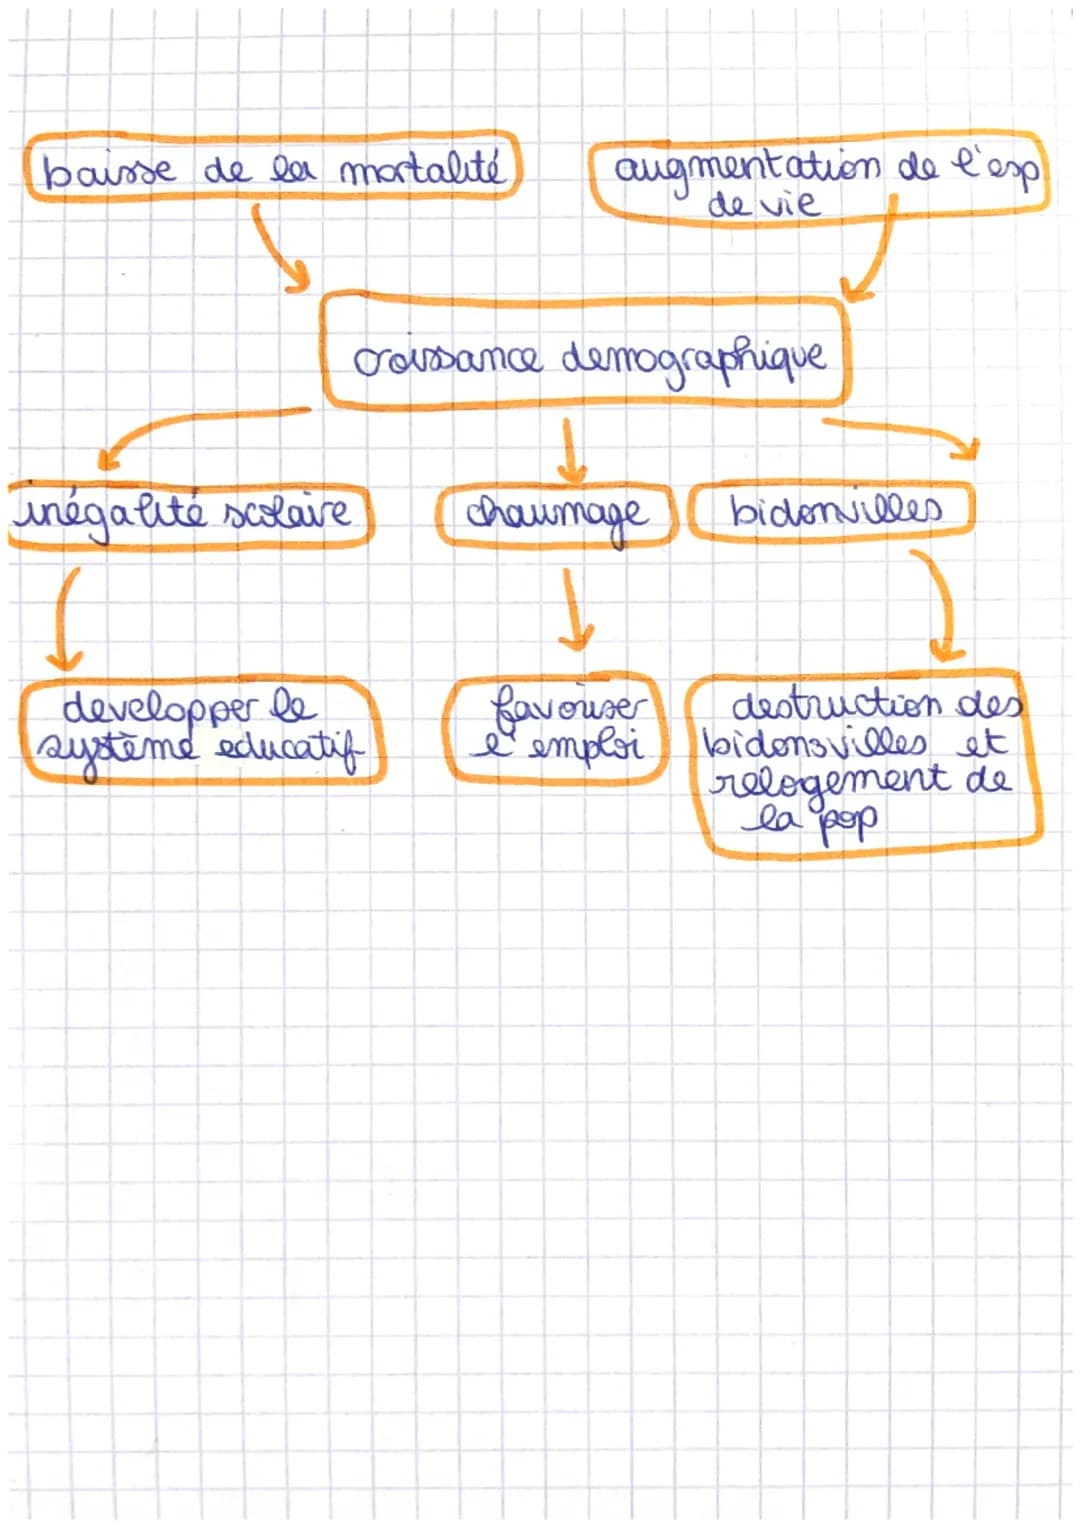 baisse de la mortalité
augmentation de l'esp
de vie
croissance demographique
inégalité scolaire
chaumage
bidonvilles
developper le
système educatif
favoriser
l'emploi
destruction des
bidonsvilles et
relogement de
la pop